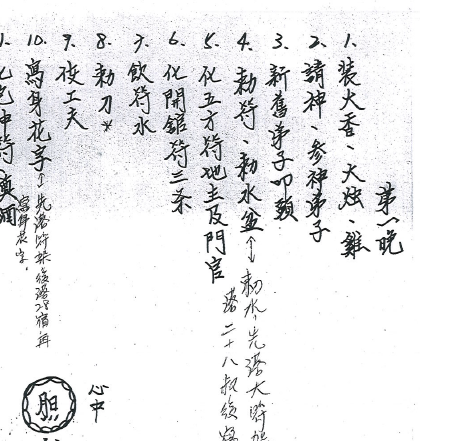 第一晚
1. 裝大香、大燭、雞
2. 請神、參神弟子
3. 新舊弟子叩頭
4. 勅符、勅水盆 ↕ 勅水,先落大
落二十八
5. 化五方符地主及門官
6. 化開館符三条
7. 飲符水
8. 勅刀*
9. 夜工夫
10. 寫身花字 ↕ 先落 後落28宿再
寫身花字,
1. 七色中符
心中
胆